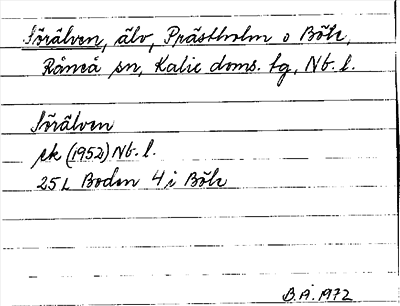 Sörälven, älv, Prästholm o Böle,
Råneå sn, Kalix doms. lg, Nb. l.
Sörälven
ek (1952) Nb. l.
25 L Boden 4 i Böle
B.Å. 1972